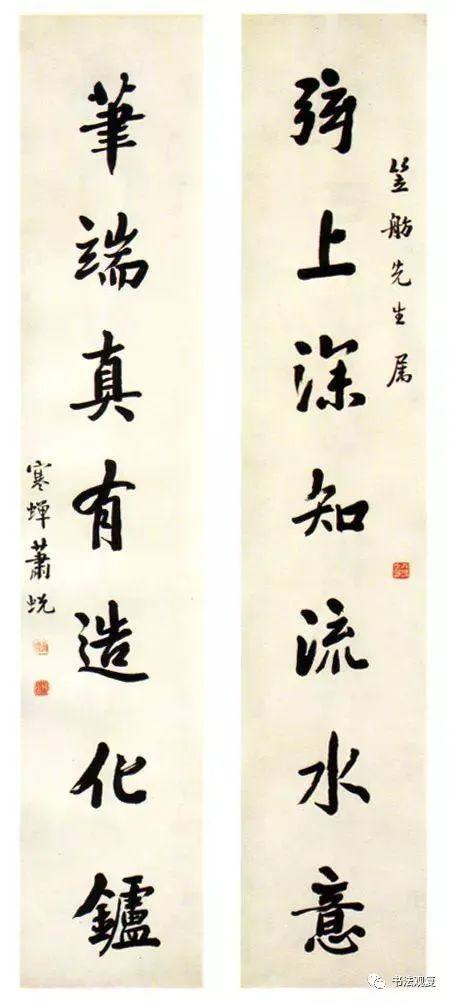 笠舫先生属
弦上深知流水意
筆端真有造化鑪
寒蝉蕭蜕
书法观复